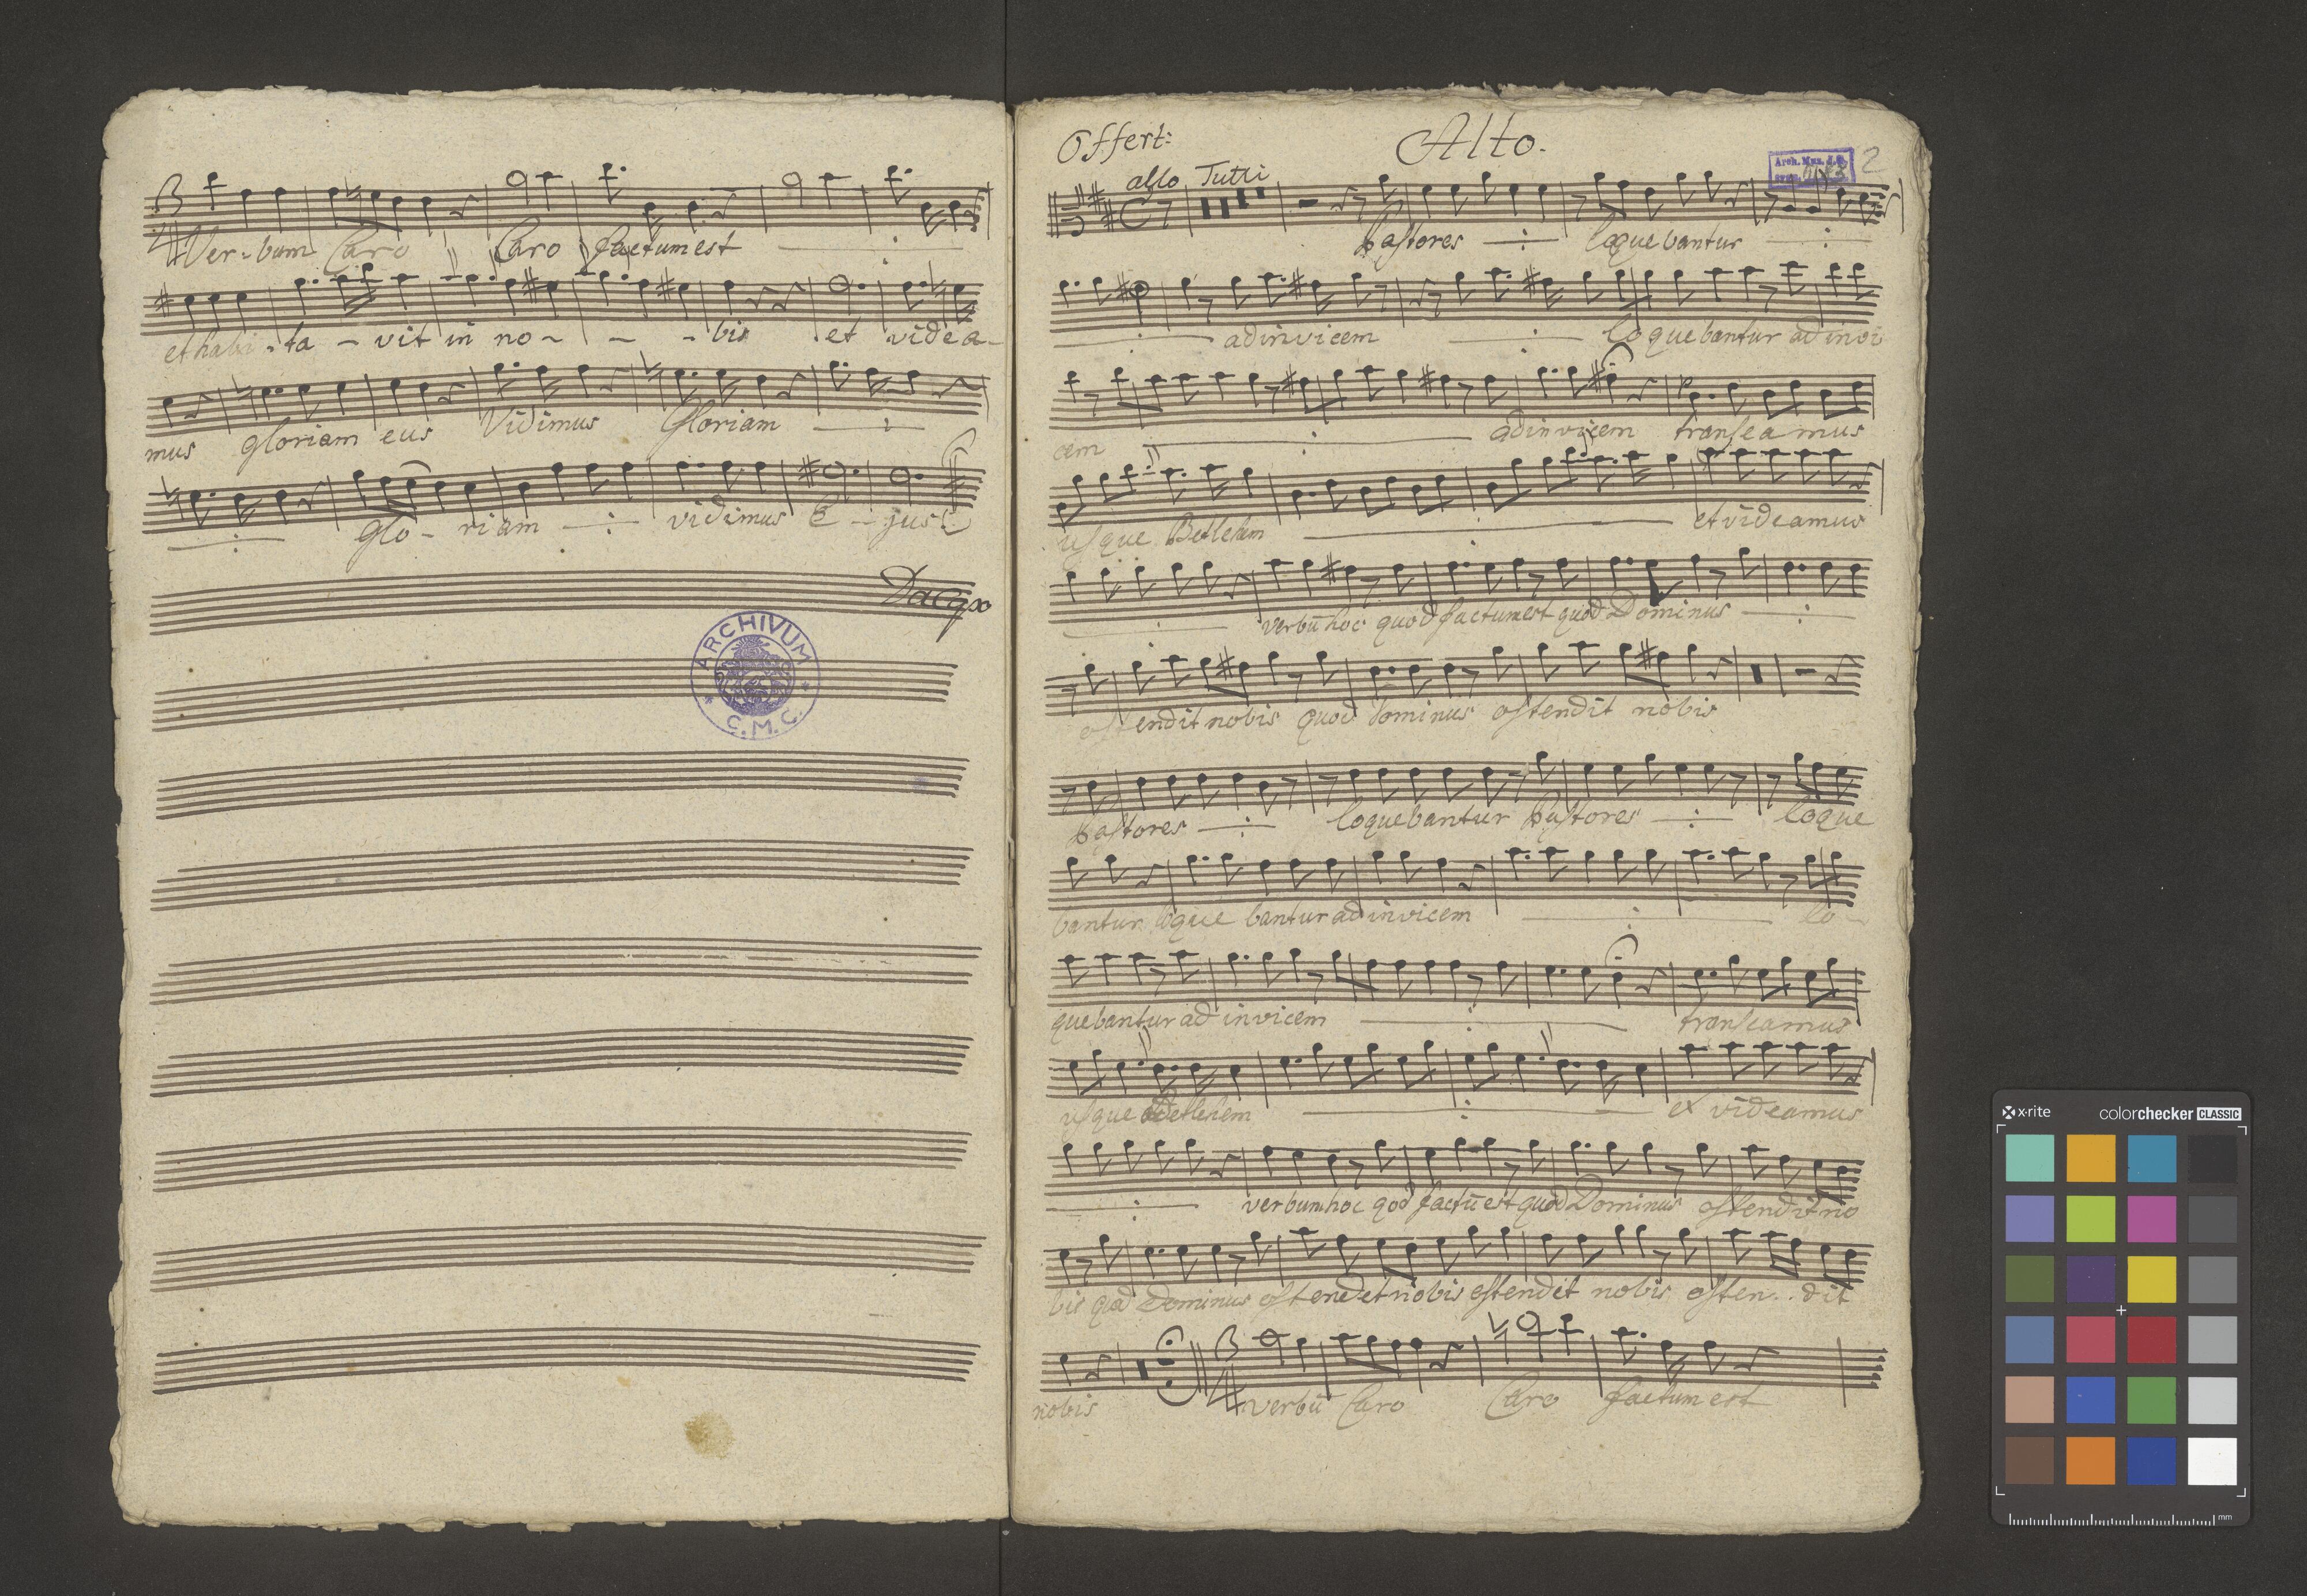 3/4 Ver-bum Caro Caro factum est
et habi-ta-vit in no - - - bis et videa-
mus gloriam eius Vidimus Gloriam
glo-riam vidimus E-jus
Da Capo
ARCHIVUM
C.M.C.
Offert: Alto. 2
Arch. Mus.
allo Tutti
C
pastores loquebantur
ad invicem loquebantur ad invi
cem ad invicem transeamus
usque Betlehem et videamus
verbū hoc quod factum est quod Dominus
ostendit nobis quod dominus ostendit nobis
pastores loquebantur Pastores loque
bantur loque bantur ad invicem lo-
quebantur ad invicem transeamus
usque Betlehem et videamus
verbum hoc qod factū est quod Dominus ostendit no
bis quod Dominus ostendet nobis ostendet nobis osten..dit
nobis 3/4 verbū Caro Caro factum est
x-rite colorchecker CLASSIC
mm